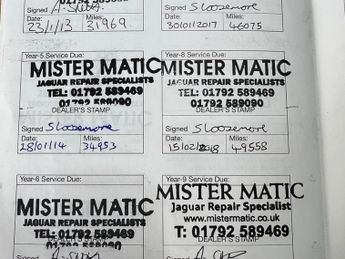 Signed A. Slby.
Date: Miles:
23/1/13 31969
Signed Sloosemore
Date: Miles:
30/01/2017 46075
Year-5 Service Due:
MISTER MATIC
JAGUAR REPAIR SPECIALISTS
TEL: 01792 589469
01792 589090
DEALER'S STAMP
Signed Sloosemore
Date: Miles:
28/01/14 34953
Year-8 Service Due:
MISTER MATIC
JAGUAR REPAIR SPECIALISTS
TEL: 01792 589469
01792 589090
DEALER'S STAMP
Signed Sloosemore
Date: Miles:
15/02/2018 49558
Year-6 Service Due:
MISTER MATIC
JAGUAR REPAIR SPECIALISTS
TEL: 01792 589469
DEALER'S STAMP
01792 589090
Signed
Year-9 Service Due:
MISTER MATIC
Jaguar Repair Specialist
www.mistermatic.co.uk
T: 01792 589469
DEALER'S STAMP
Signed